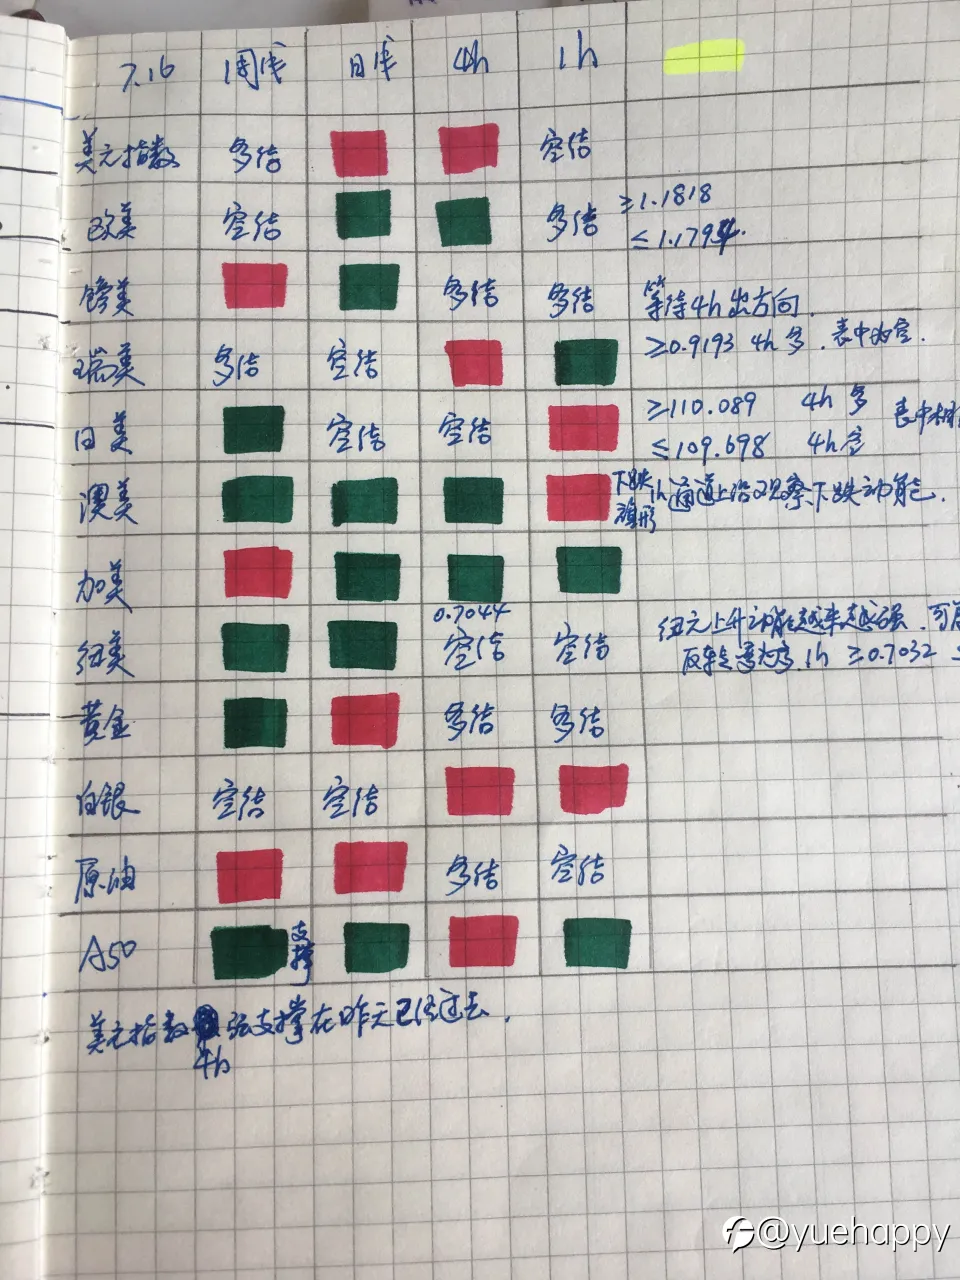 7.16 周线 日线 4h 1h
美元指数 多结 空结
欧美 空结 多结 ≥1.1818
≤1.1794.
镑美 多结 多结 等待4h出方向.
瑞美 多结 空结 ≥0.9193 4h多. 表中为空.
日美 空结 空结 ≥110.089 4h多 表中相
≤109.698 4h空
澳美 下跌旗形 1h通道上沿观察下跌动能.
加美
0.7044
纽美 空结 空结 纽元上升动能越来越强. 可
反转 1h ≥0.7032
黄金 多结 多结
白银 空结 空结
原油 多结 空结
A50 支撑
美元指数 强支撑在昨天已经过去.
4h
@yuehappy